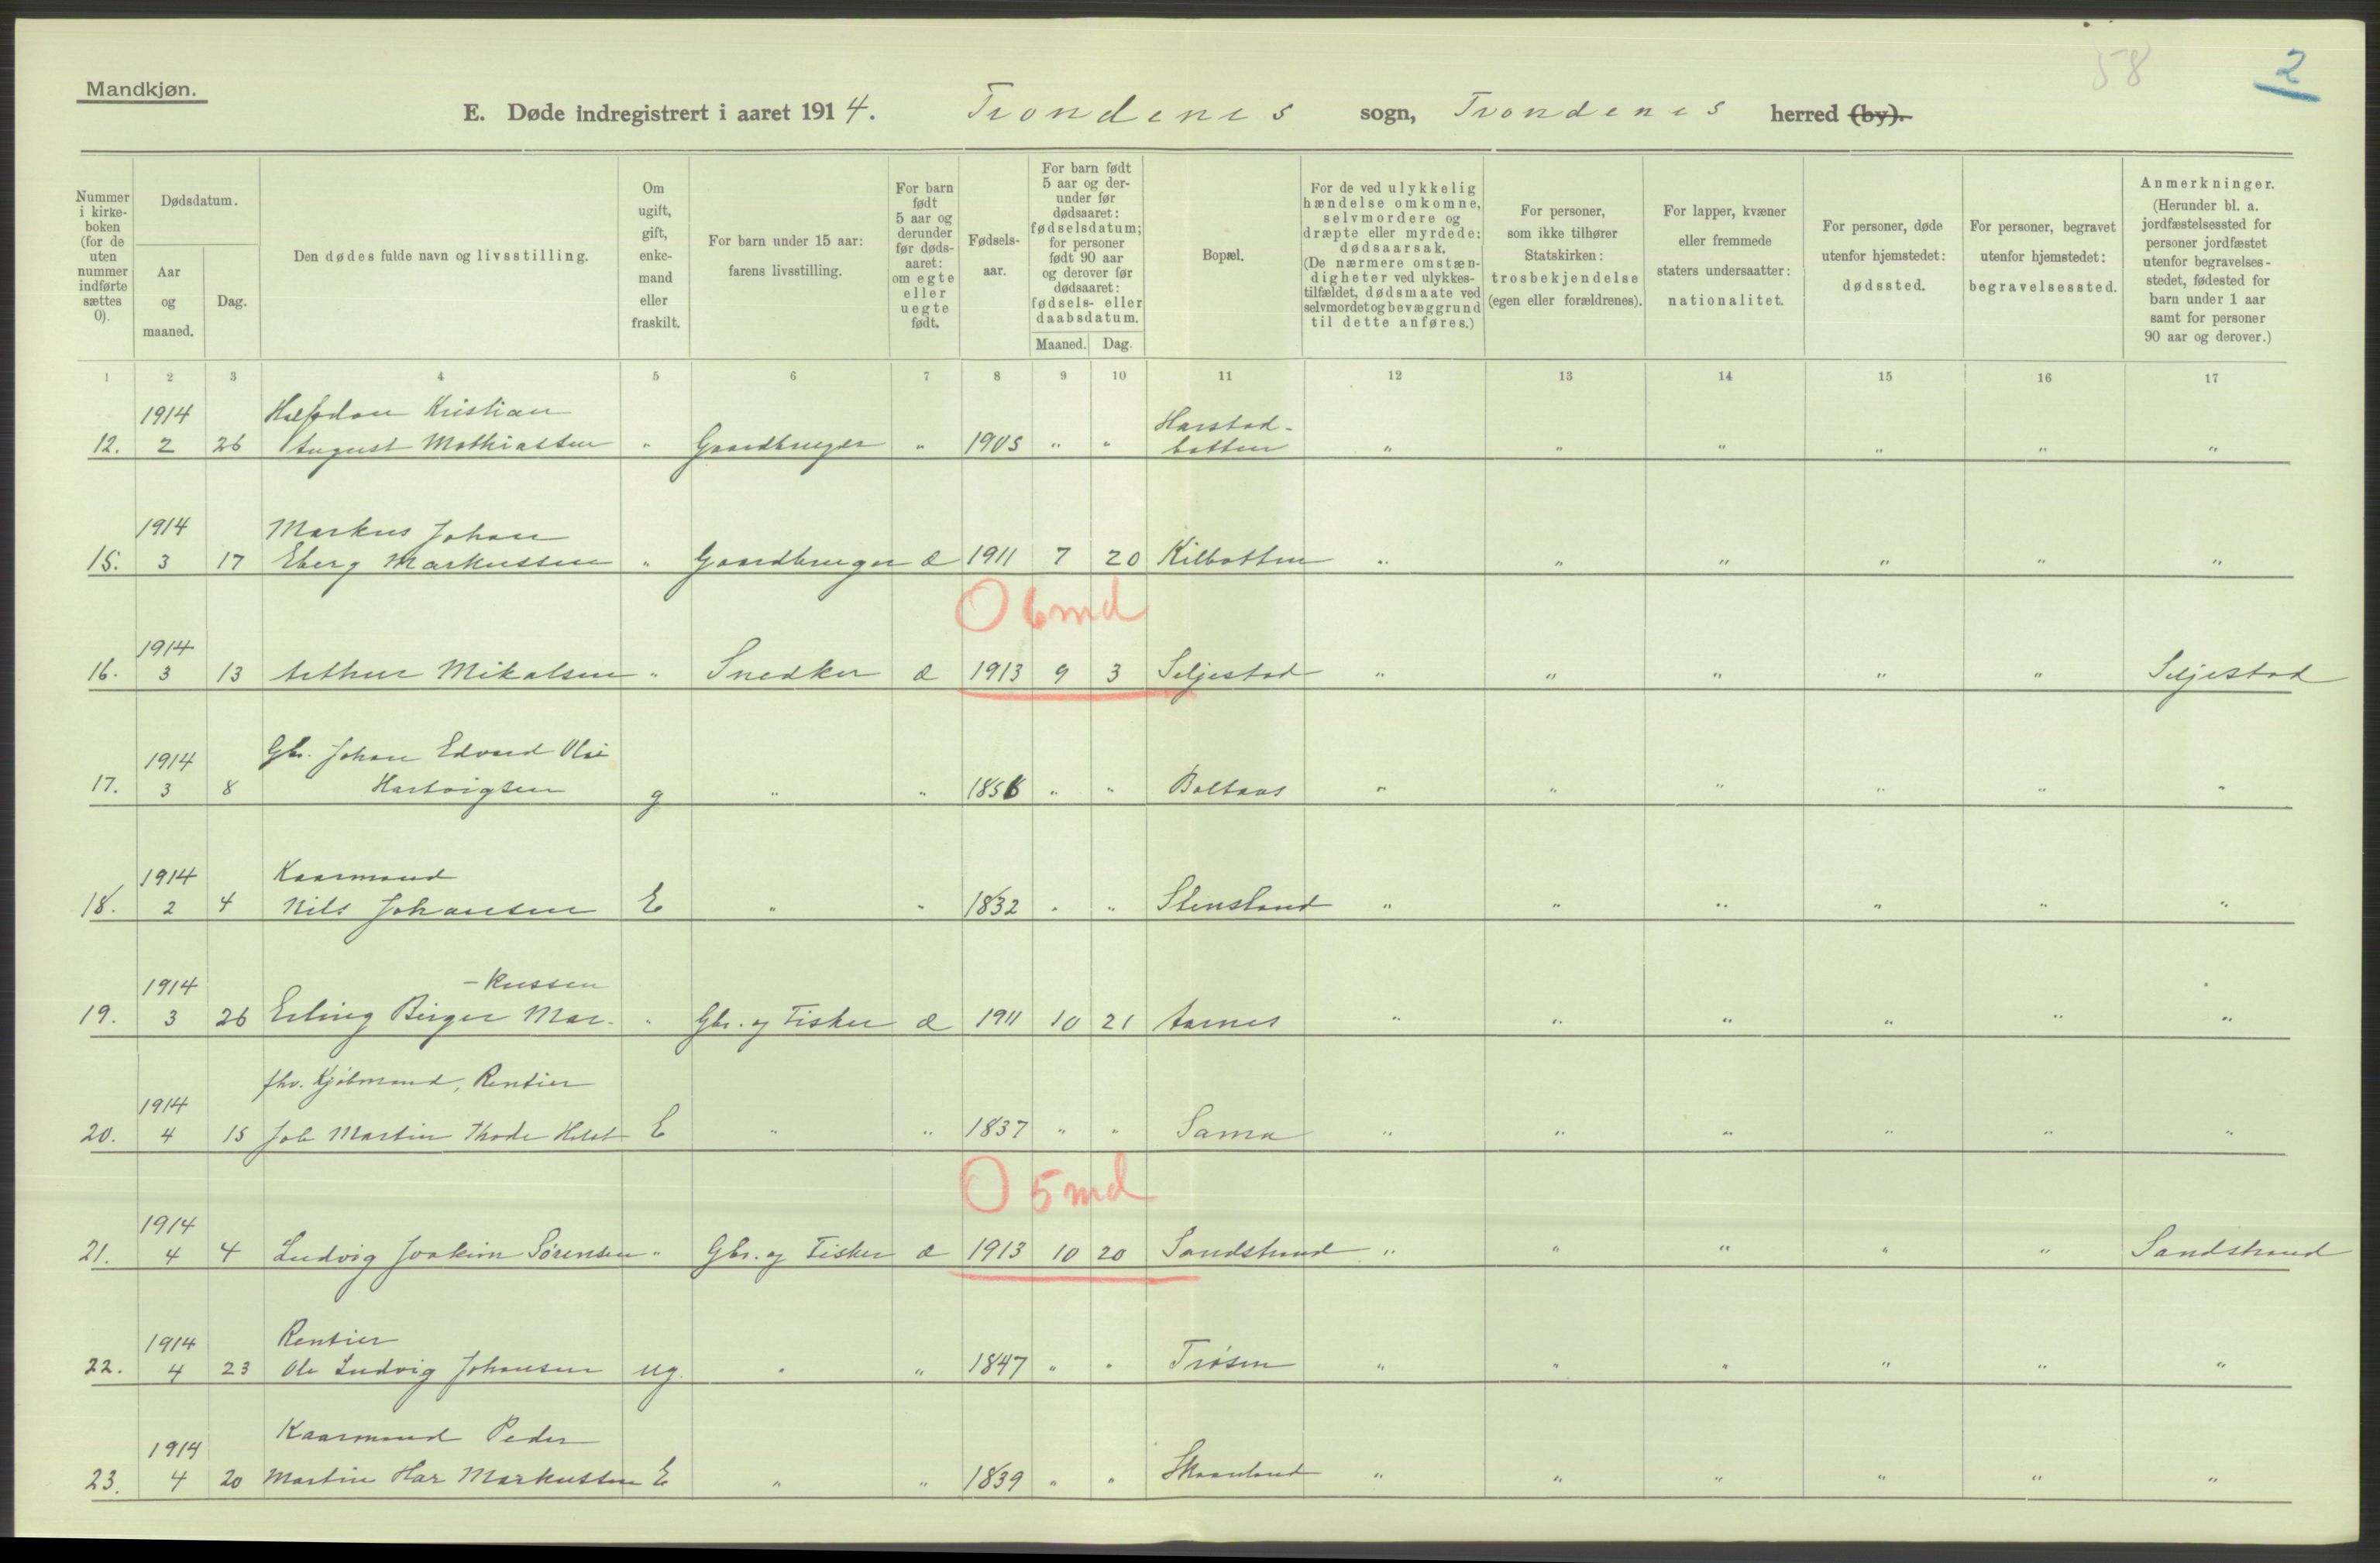 58
2
Mandkjøn.
E. Døde indregistrert i aaret 1914. Trondenes sogn, Trondenes herred (by).
Nummer i kirke-boken (for de uten nummer indførte sættes 0).
Dødsdatum.
Aar og maaned.
Dag.
Den dødes fulde navn og livsstilling.
Om ugift, gift, enke-mand eller fraskilt.
For barn under 15 aar: farens livsstilling.
For barn født 5 aar og derunder før døds-aaret: om egte eller uegte født.
Fødsels-aar.
For barn født 5 aar og der-under før dødsaaret: fødselsdatum; for personer født 90 aar og derover før dødsaaret: fødsels- eller daabsdatum.
Maaned. Dag.
Bopæl.
For de ved ulykkelig hændelse omkomne, selvmordere og dræpte eller myrdede: dødsaarsak. (De nærmere omstæn-digheter ved ulykkes-tilfældet, dødsmaate ved selvmordet og bevæggrund til dette anføres.)
For personer, som ikke tilhører Statskirken: trosbekjendelse (egen eller forældrenes).
For lapper, kvæner eller fremmede staters undersaatter: nationalitet.
For personer, døde utenfor hjemstedet: dødssted.
For personer, begravet utenfor hjemstedet: begravelsessted.
Anmerkninger. (Herunder bl. a. jordfæstelsessted for personer jordfæstet utenfor begravelses-stedet, fødested for barn under 1 aar samt for personer 90 aar og derover.)
1 2 3 4 5 6 7 8 9 10 11 12 13 14 15 16 17
1914 Halfdan Kristian Harstad-
12. 2 26 August Mathiassen " Gaardbruger " 1905 " " botten " " " " " "
1914 Markus Johan
15. 3 17 Eberg Markussen " Gaardbruger æ 1911 7 20 Kilbotten " " " " " "
O 6 md
1914
16. 3 13 Arthur Mikalsen " Snedker æ 1913 9 3 Seljestad " " " " " Seljestad
1914 Gbr. Johan Edvard Olai
17. 3 8 Hartvigsen g " " 1856 " " Boltaas " " " " " "
1914 Kaarmand
18. 2 4 Nils Johansen E " " 1832 " " Stensland " " " " " "
1914 -kussen
19. 3 26 Erling Birger Mar- " Gbr. og Fisker æ 1911 10 21 Aarnes " " " " " "
fhv. Kjøbmand, Rentier
1914
20. 4 15 Joh Martin Thode Holst E " " 1837 " " Sama " " " " " "
O 5 md
1914
21. 4 4 Ludvig Joakim Sørensen " Gbr. og Fisker æ 1913 10 20 Sandstrand " " " " " Sandstrand
1914 Rentier
22. 4 23 Ole Ludvig Johansen ug. " " 1847 " " Trøsen " " " " " "
1914 Kaarmand Peder
23. 4 20 Martin Har Markussen E " " 1839 " " Skaanland " " " " " "